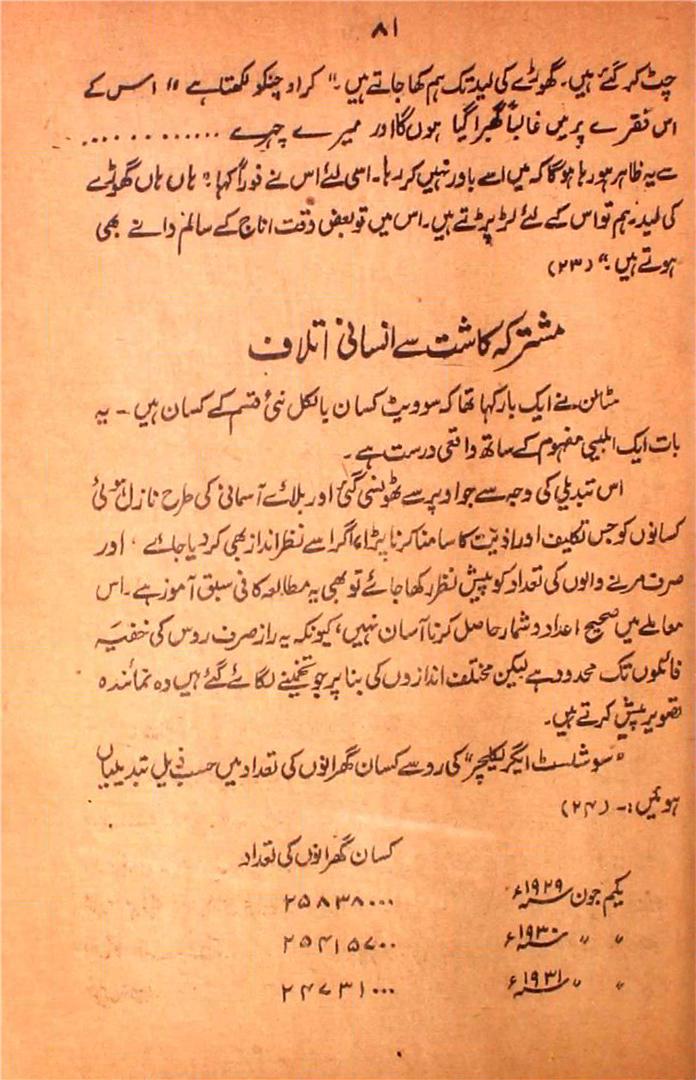 ۸۱
چٹ کر گئے ہیں۔ گھوڑے کی لید تک ہم کھا جاتے ہیں۔" کراوچنکو لکھتا ہے " اس کے
اس فقرے پر میں غالباً گھبرا گیا ہوں گا اور میرے چہرے ............
سے یہ ظاہر ہو رہا ہوگا کہ میں اسے باور نہیں کر رہا۔ اسی لئے اس نے فوراً کہا" ہاں ہاں گھوڑے
کی لید۔ ہم تو اس کے لئے لڑ پڑتے ہیں۔ اس میں تو بعض وقت اناج کے سالم دانے بھی
ہوتے ہیں۔" (۲۳)
مشترکہ کاشت سے انسانی اتلاف
سٹالن نے ایک بار کہا تھا کہ سوویٹ کسان بالکل نئی قسم کے کسان ہیں۔- یہ
بات ایک المیی مفہوم کے ساتھ واقعی درست ہے۔
اس تبدیلی کی وجہ سے جو اوپر سے ٹھونسی گئی اور بلائے آسمانی کی طرح نازل ہوئی
کسانوں کو جس تکلیف اور اذیت کا سامنا کرنا پڑا، اگر اسے نظر انداز بھی کر دیا جائے، اور
صرف مرنے والوں کی تعداد کو پیش نظر رکھا جائے تو بھی یہ مطالعہ کافی سبق آموز ہے۔ اس
معاملے میں صحیح اعداد و شمار حاصل کرنا آسان نہیں، کیونکہ یہ راز صرف روس کی خفیہ
فائلوں تک محدود ہے لیکن مختلف اندازوں کی بنا پر جو تخمینے لگائے گئے ہیں وہ نمائندہ
تصویر پیش کرتے ہیں۔
"سوشلسٹ ایگریکلچر" کی رو سے کسان گھرانوں کی تعداد میں حسب ذیل تبدیلیاں
ہوئیں:۔ (۲۴)
کسان گھرانوں کی تعداد
یکم جون ۱۹۲۹ء ۲۵۸۳۸۰۰۰
" " ۱۹۳۰ء ۲۵۴۱۵۷۰۰
" " ۱۹۳۱ء ۲۴۷۳۱۰۰۰